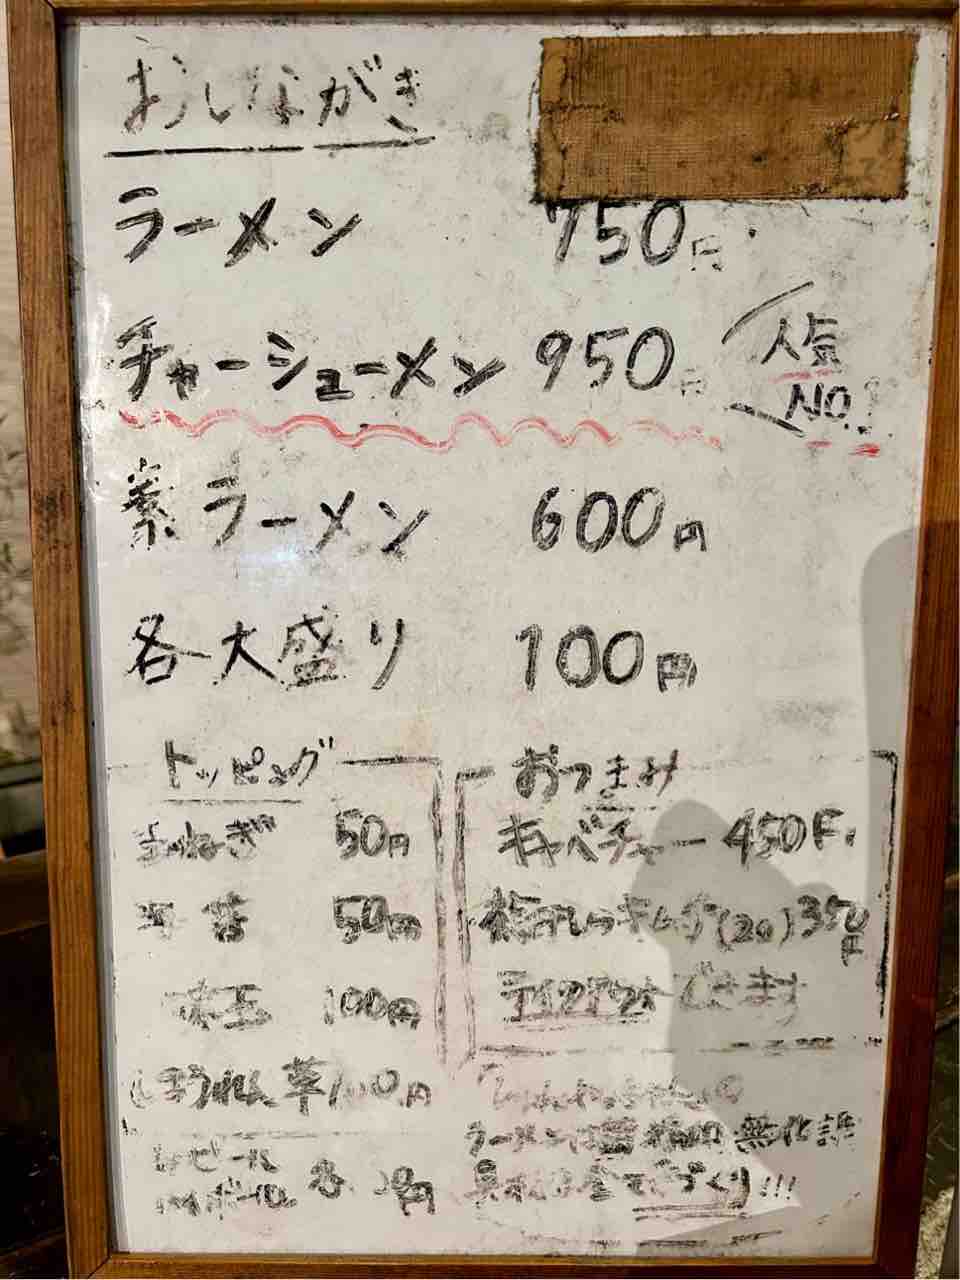 おしながき
ラーメン 750円
チャーシューメン 950円 人気 No.
素ラーメン 600円
各大盛り 100円
トッピング
玉ねぎ 50円
海苔 50円
味玉 100円
ほうれん草 100円
ビール 各 円
おつまみ
キャベチャー 450円
キムチ(20) 350円
テイクアウトできます
ラーメンは 無化調
全て手づくり!!!